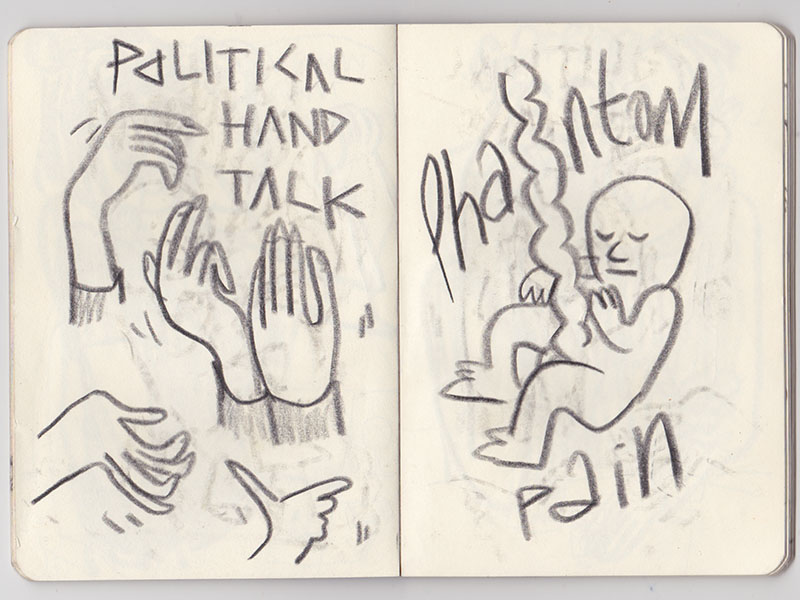 POLITICAL
HAND
TALK
phantom
pain